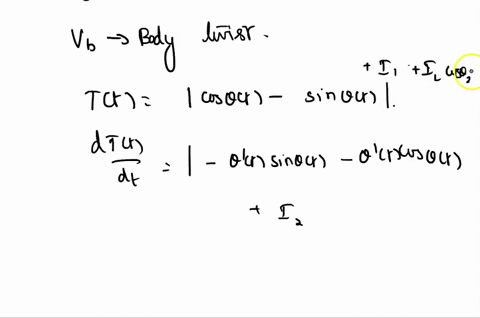 V_b → Body twist.
+ I_1 + I_L cosθ_2
T(t) = | cosθ(t) - sinθ(t) |.
dT(t)/dt = | - θ'(t) sinθ(t) - θ'(t) cosθ(t)
+ I_2